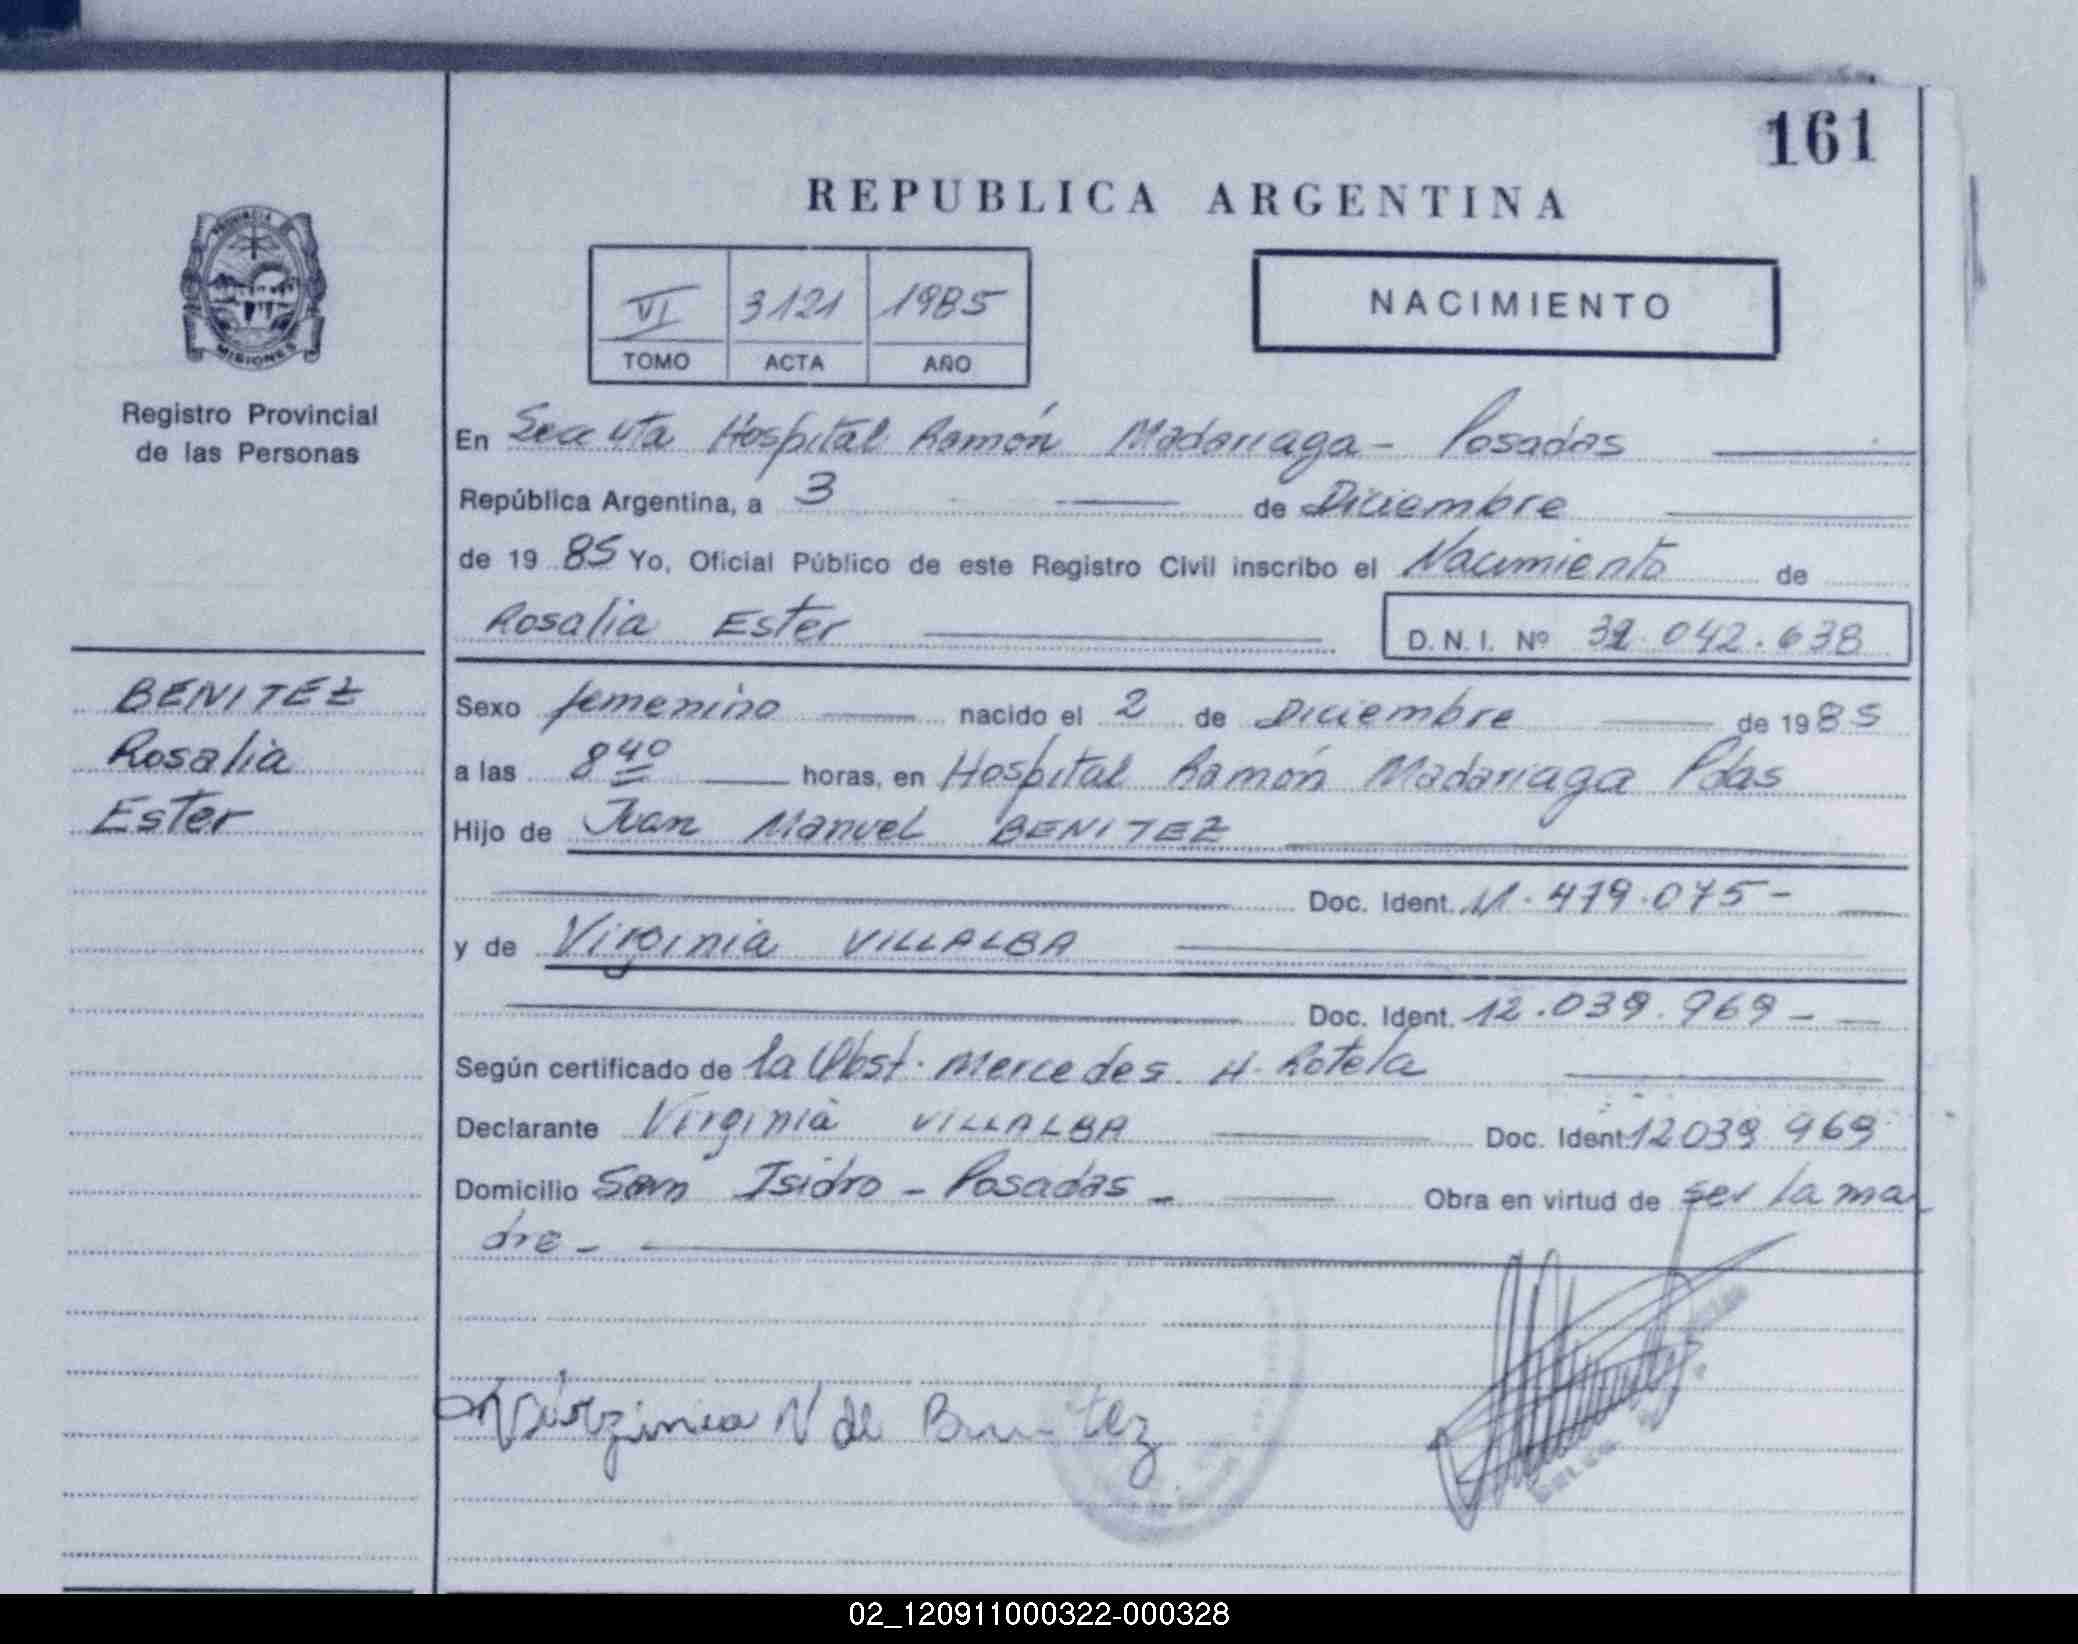 161
REPUBLICA ARGENTINA
PROVINCIA DE
MISIONES
Registro Provincial
de las Personas
VI 3121 1985
TOMO ACTA AÑO
NACIMIENTO
En Secc 4ta Hospital Ramón Madariaga - Posadas
República Argentina, a 3 de Diciembre
de 1985 Yo, Oficial Público de este Registro Civil inscribo el Nacimiento de
Rosalia Ester D.N.I. Nº 32.042.638
BENITEZ
Rosalia
Ester
Sexo femenino nacido el 2 de Diciembre de 1985
a las 8 40 horas, en Hospital Ramón Madariaga Pdas
Hijo de Juan Manuel BENITEZ
Doc. Ident. 11.419.075-
y de Virginia VILLALBA
Doc. Ident. 12.039.969 - -
Según certificado de la Obst. Mercedes H. Rotela
Declarante Virginia VILLALBA Doc. Ident. 12039969
Domicilio San Isidro - Posadas - Obra en virtud de ser la ma
dre -
Virginia V de Benitez
02_120911000322-000328